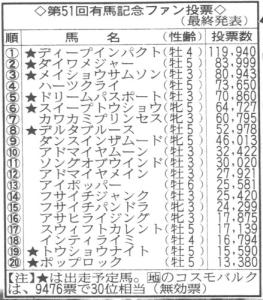 ◇第51回有馬記念ファン投票◇
（最終発表）
順 馬名 （性齢） 投票数
① ★ディープインパクト（牡4） 119,940
② ★ダイワメジャー（牡5） 83,999
③ ★メイショウサムソン（牡3） 80,943
④ ハーツクライ（牡5） 73,650
⑤ ★ドリームパスポート（牡3） 70,860
⑥ ★スイープトウショウ（牝5） 64,722
⑦ カワカミプリンセス（牝3） 60,795
⑧ ★デルタブルース（牡5） 52,978
⑨ ダンスインザムード（牝5） 46,013
⑩ アドマイヤムーン（牡3） 44,422
⑪ ソングオブウインド（牡3） 30,020
⑫ アドマイヤメイン（牡3） 27,921
⑬ アイポッパー（牡6） 25,581
⑭ フサイチジャンク（牡3）
⑮ フサイチパンドラ（牝3）
⑯ アサヒライジング（牝3） 17,875
⑰ スウィフトカレント（牡5） 17,139
⑱ インティライミ（牡4） 16,794
⑲ ★トウショウナイト（牡5） 15,590
⑳ ★ポップロック（牡5） 13,380
【注】★は出走予定馬。地のコスモバルク
は、9476票で30位相当（無効票）